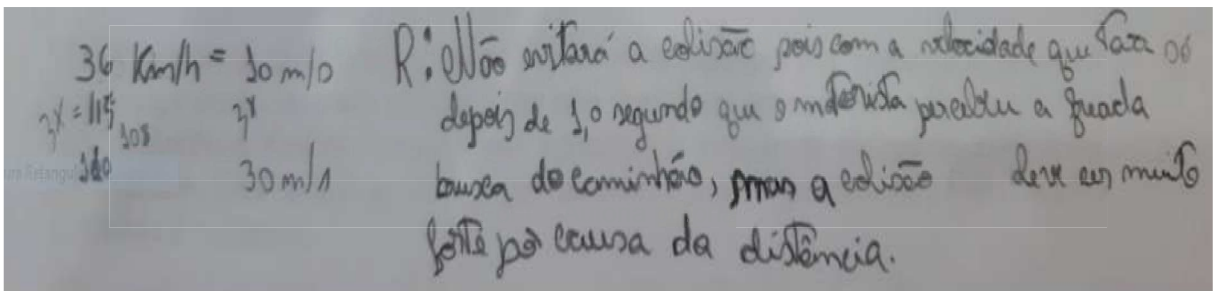 36 Km/h = 10 m/s
3x = 115 108 3x
110 30 m/s
R: Não evitará a colisão pois com a velocidade que tava só
depois de 1,0 segundo que o motorista percebeu a freada
brusca do caminhão, mas a colisão deve ser muito
forte por causa da distância.